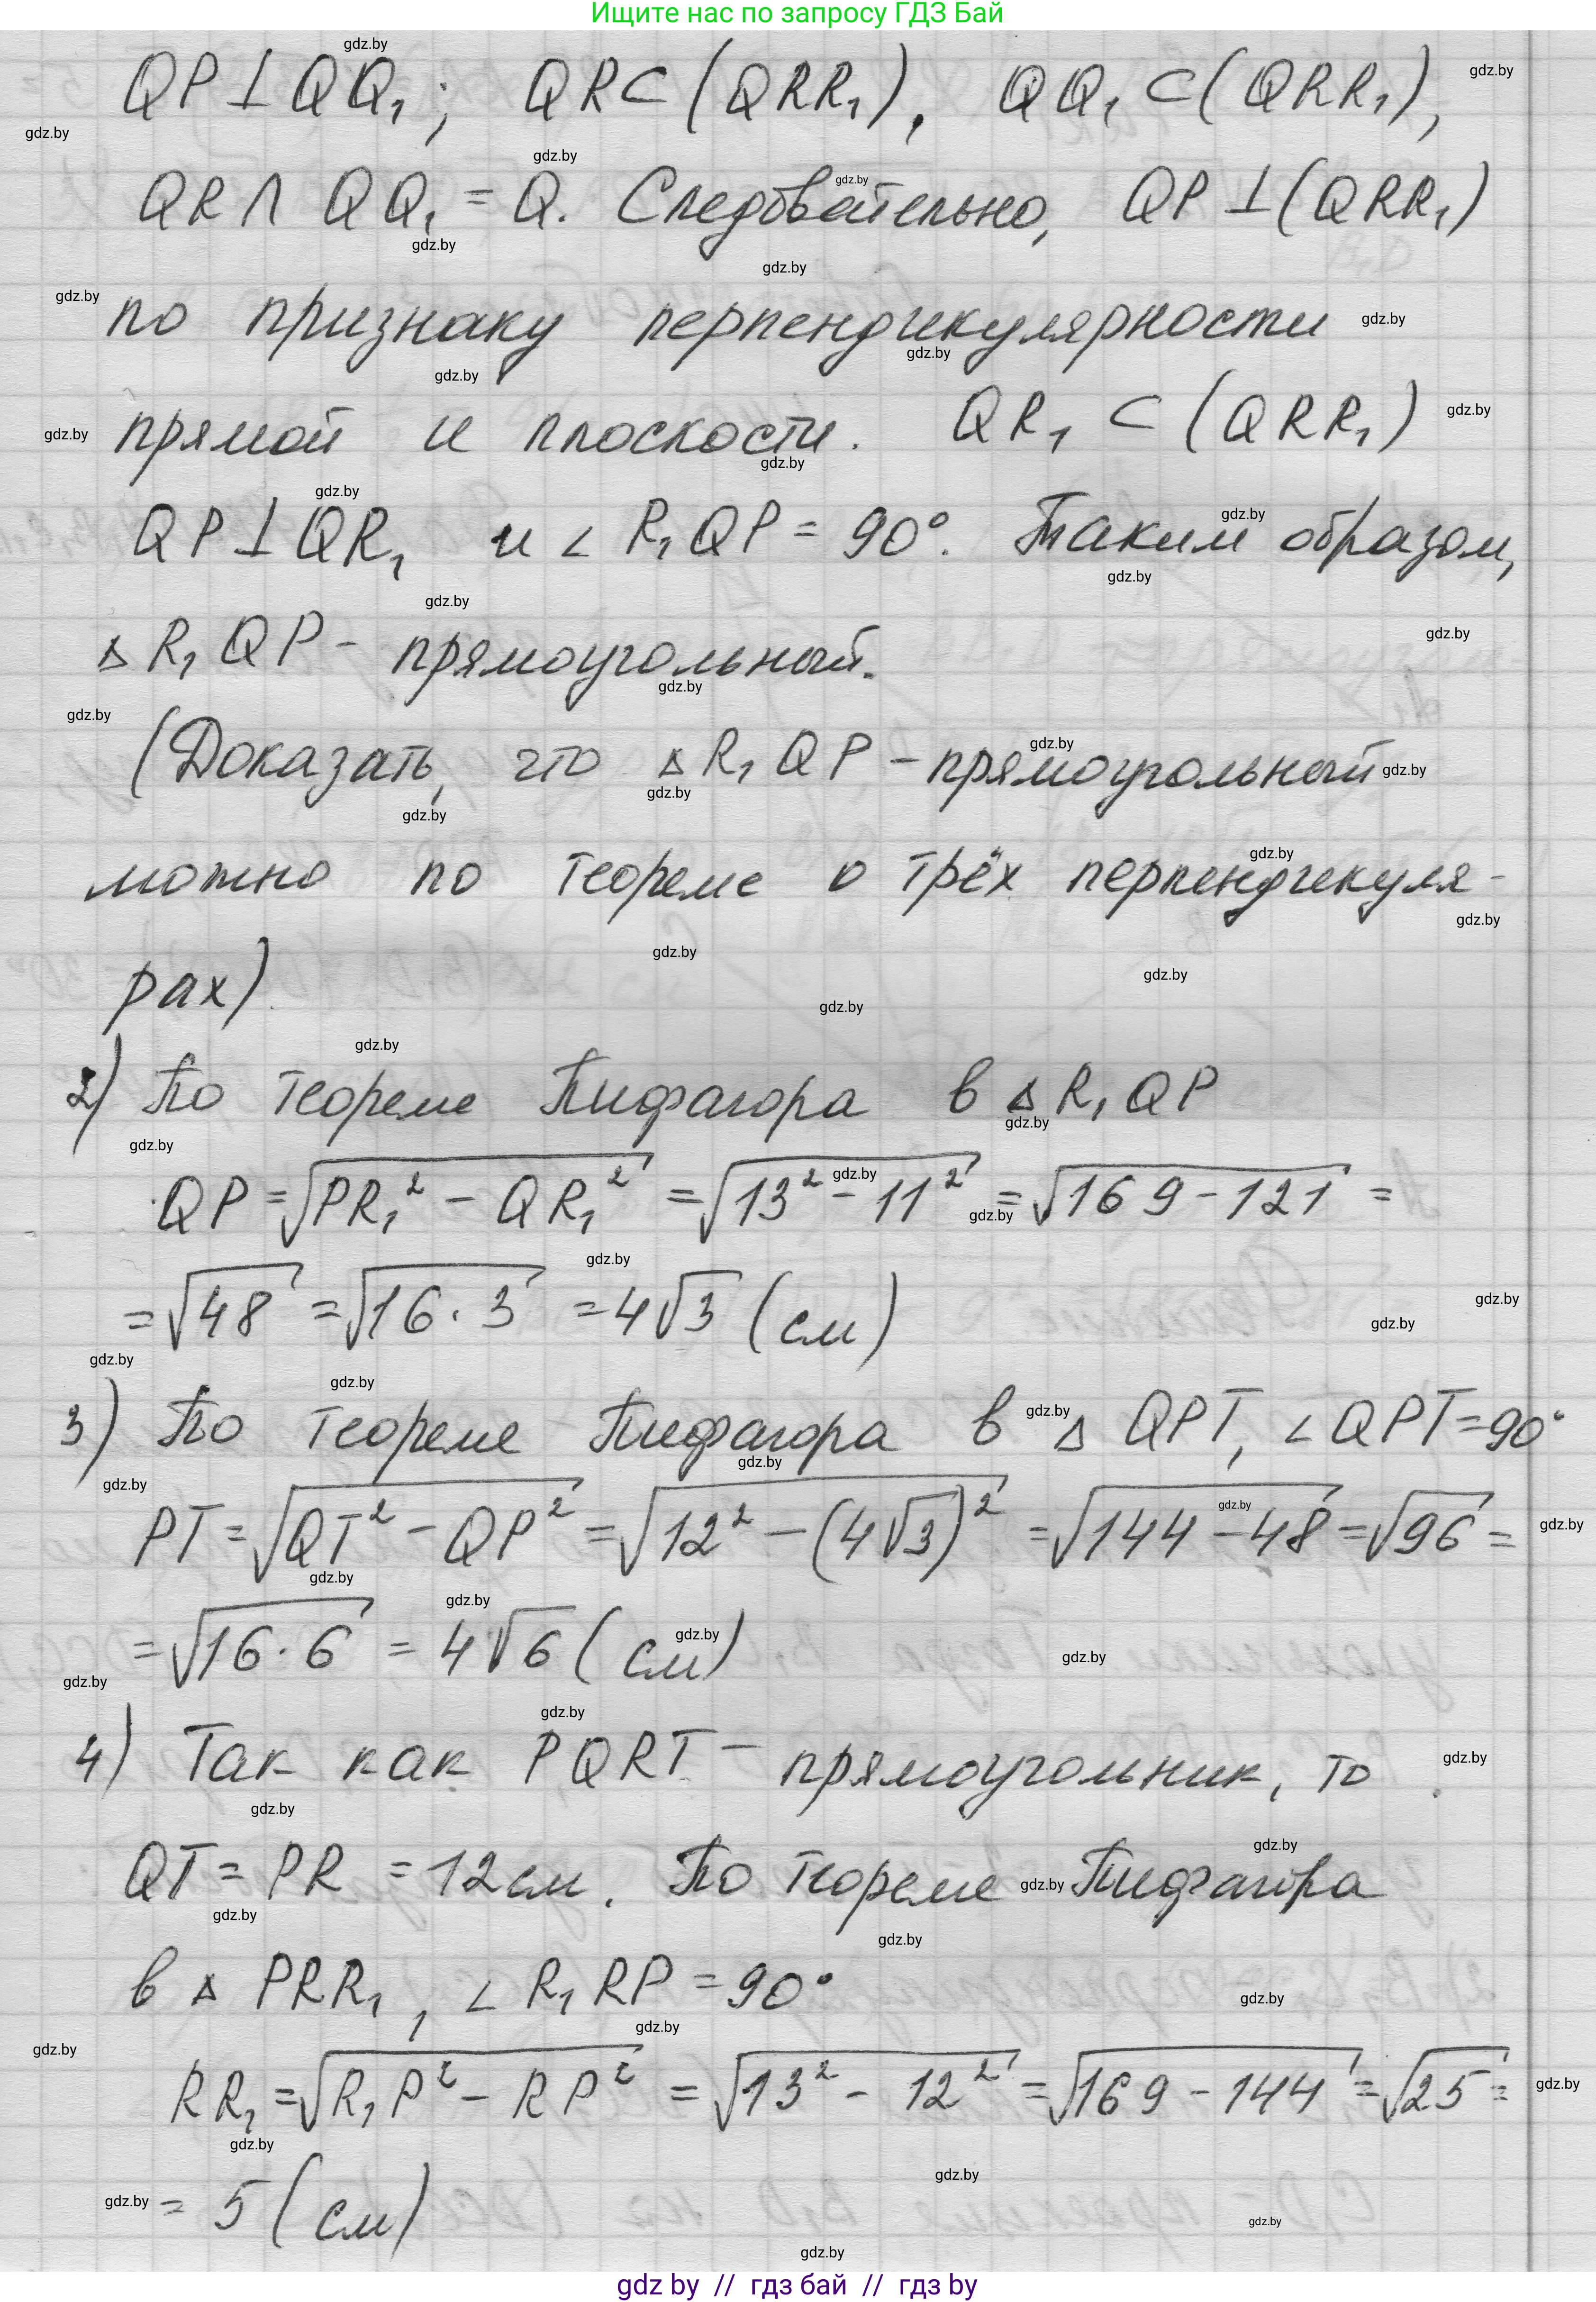 Ищите нас по запросу ГДЗ Бай
QP⊥QQ₁; QR⊂(QRR₁), QQ₁⊂(QRR₁),
QR∩QQ₁=Q. Следовательно, QP⊥(QRR₁)
по признаку перпендикулярности
прямой и плоскости. QR₁⊂(QRR₁)
QP⊥QR₁ и ∠R₁QP=90°. Таким образом,
△R₁QP - прямоугольный.
(Доказать, что △R₁QP - прямоугольный
можно по теореме о трёх перпендикуля-
рах).
2) По теореме Пифагора в △R₁QP
QP=√(PR₁² - QR₁²) =√(13² - 11²) =√(169-121) =
=√48 =√(16·3) =4√3 (см)
3) По теореме Пифагора в △QPT, ∠QPT=90°
PT=√(QT² - QP²) =√(12² - (4√3)²) =√(144-48) =√96 =
=√(16·6) = 4√6 (см)
4) Так как PQRT - прямоугольник, то
QT = PR = 12 см. По теореме Пифагора
в △PRR₁, ∠R₁RP=90°
RR₁ =√(R₁P² - RP²) = √(13² - 12²) =√(169-144) =√25 =
= 5 (см)
gdz by // гдз бай // гдз by